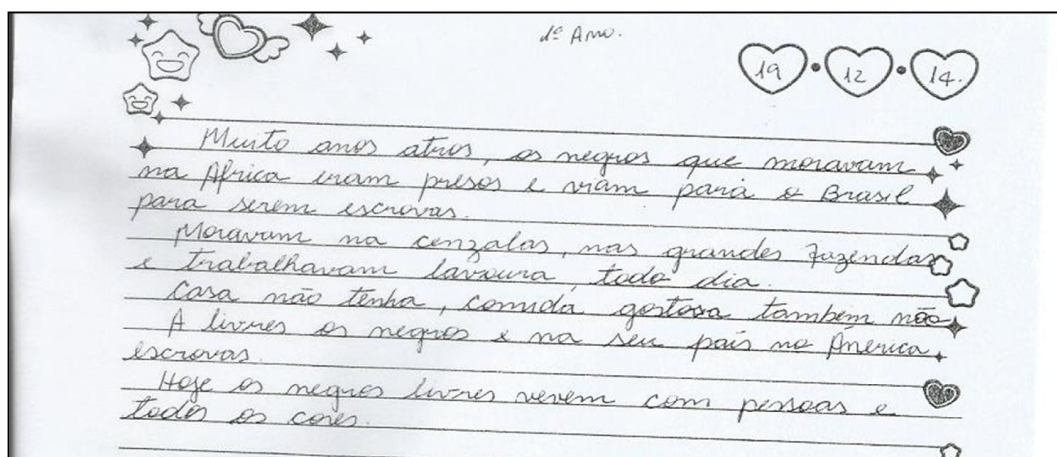 1º Ano.
19 . 12 . 14.
Muito anos atrás, os negros que moravam
na Africa eram presos e viam para o Brasil
para serem escrovas.
Moravam na cenzalas, nas grandes fazendas
e trabalhavam lavoura, todo dia.
Casa não tenha, comida gostosa também não
A livres os negros e na seu país no América
escrovas.
Hoje os negros livres vevem com pessoas e
todos os cores.